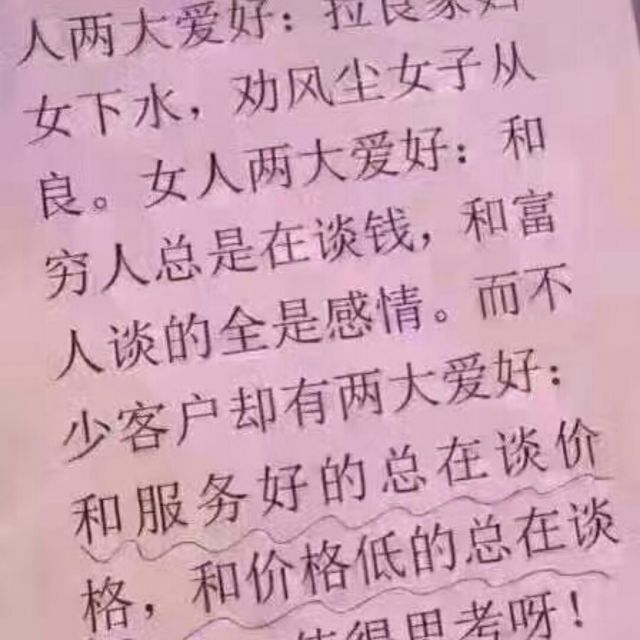 人两大爱好：拉良家妇
女下水，劝风尘女子从
良。女人两大爱好：和
穷人总是在谈钱，和富
人谈的全是感情。而不
少客户却有两大爱好：
和服务好的总在谈价
格，和价格低的总在谈
值得思考呀！